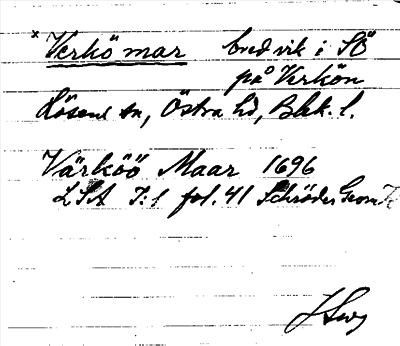 x Verkö mar bred vik i SÖ
på Verkön
Lösens sn, Östra hd, Blek. l.
Värköö Maar 1696
LSA I:1 fol. 41 Schröder Geom